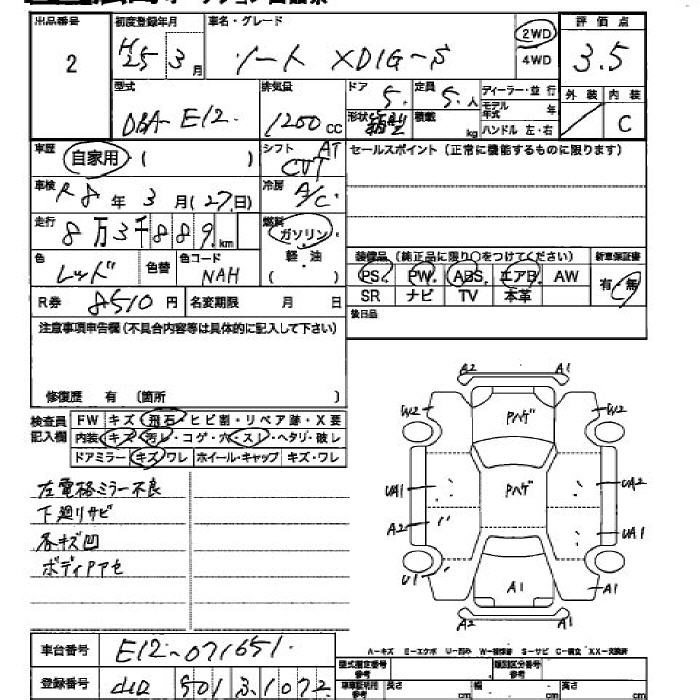 出品番号
2
初度登録年月
H25 3月
車名・グレード
ノート XDIG-S
2WD
4WD
評価点
3.5
型式
DBA-E12
排気量
1200 CC
ドア
5
定員
5人
ディーラー・並行
モデル年式 年
ハンドル 左・右
形状
箱型
積載 kg
外装
内装
C
車歴
自家用 ( )
シフト AT
CVT
セールスポイント (正常に機能するものに限ります)
車検
R8年3月(27日)
冷房
A/C
走行
8万3千889km
燃料
ガソリン
軽・油
( )
色
レッド
色替
色コード
NAH
装備品 (純正品に限り○をつけてください)
新車保証書
PS PW ABS エアB AW
有・無
SR ナビ TV 本革
R券 8510円
名変期限 月 日
後日品
注意事項申告欄 (不具合内容等は具体的に記入して下さい)
修復歴 有 (箇所 )
検査員
記入欄
FW キズ・飛石・ヒビ割・リペア跡・X要
内装 キズ・汚レ・コゲ・穴・スレ・ヘタリ・破レ
ドアミラー キズ・ワレ ホイール・キャップ キズ・ワレ
左電格ミラー不良
下廻りサビ
各キズ凹
ボディPアセ
A2 A1
W2 Pハゲ W2
UA1 Pハゲ UA2
A2 UA1
U1 A1 A1
A2 A1
車台番号 E12-071651
登録番号 501 3 1072
型式指定番号
参考
類別区分番号
参考
車車証明用
参考
長さ cm
幅 cm
高さ cm